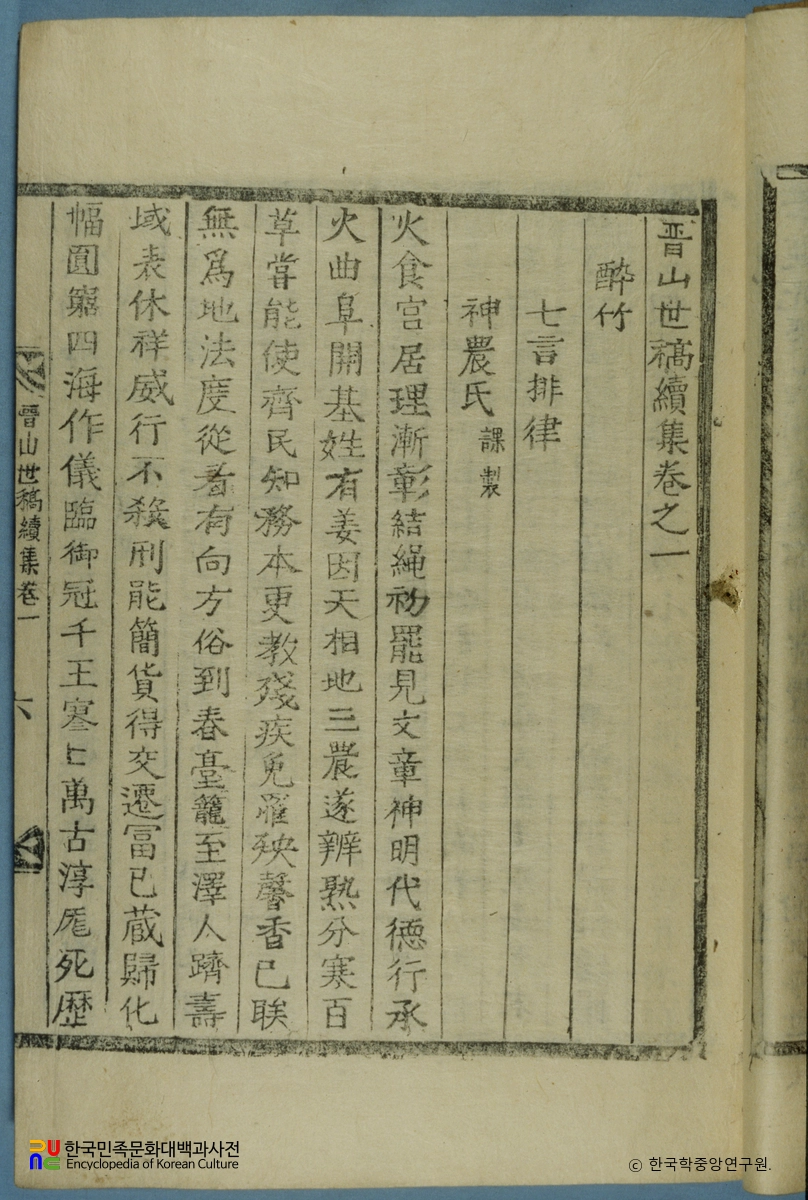 晋山世稿續集卷之一
醉竹
七言排律
神農氏 課製
火食宮居理漸彰結繩初罷見文章神明代德行承
火曲阜開基姓有姜因天相地三農遂辨熟分寒百
草嘗能使齊民知務本更教殘疾免罹殃馨香已联
無爲地法度從看有向方俗到春臺籠至澤人躋壽
域表休祥威行不殺刑能簡貨得交遷富已蔵歸化
幅圓窮四海作儀臨御冠千王寥寥萬古淳厖死歷
晋山世稿續集卷一 六
한국민족문화대백과사전
Encyclopedia of Korean Culture
© 한국학중앙연구원.